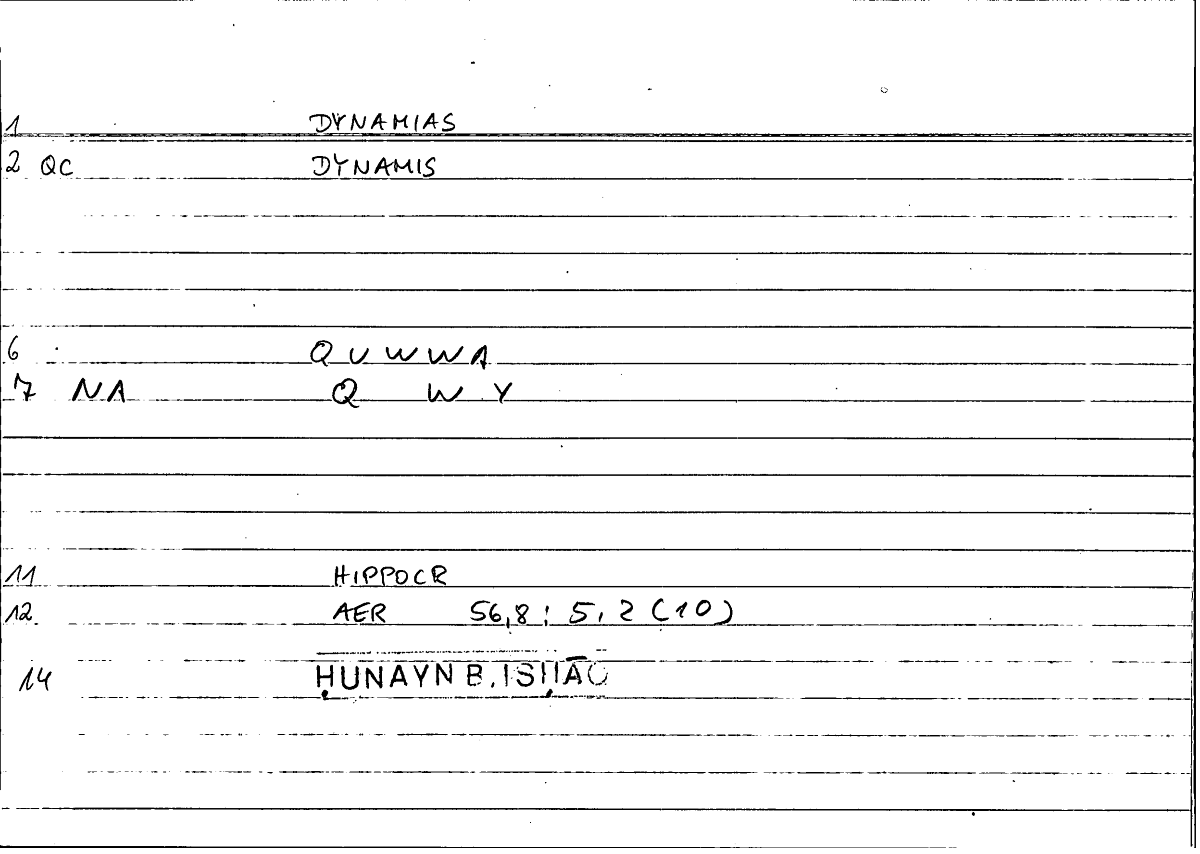 1 DYNAMIAS
2 QC DYNAMIS
6 QUWWA
7 NA Q W Y
11 HIPPOCR
12 AER 56,8 ; 5,2 (10)
14 ḤUNAYN B. ISḤĀQ